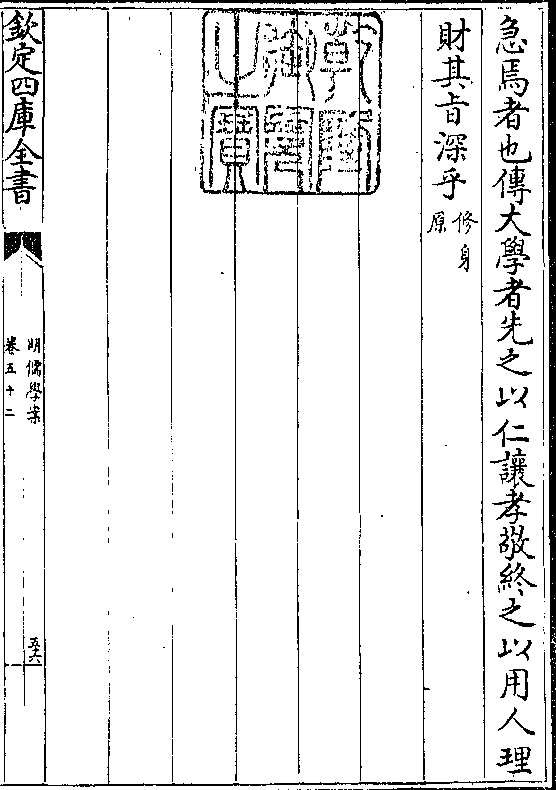 急焉者也傳大學者先之以仁讓孝敬終之以用人理
財其㫖深乎
修身
原
乾隆御覽之寶
欽定四庫全書
明儒學案
卷五十二
五六